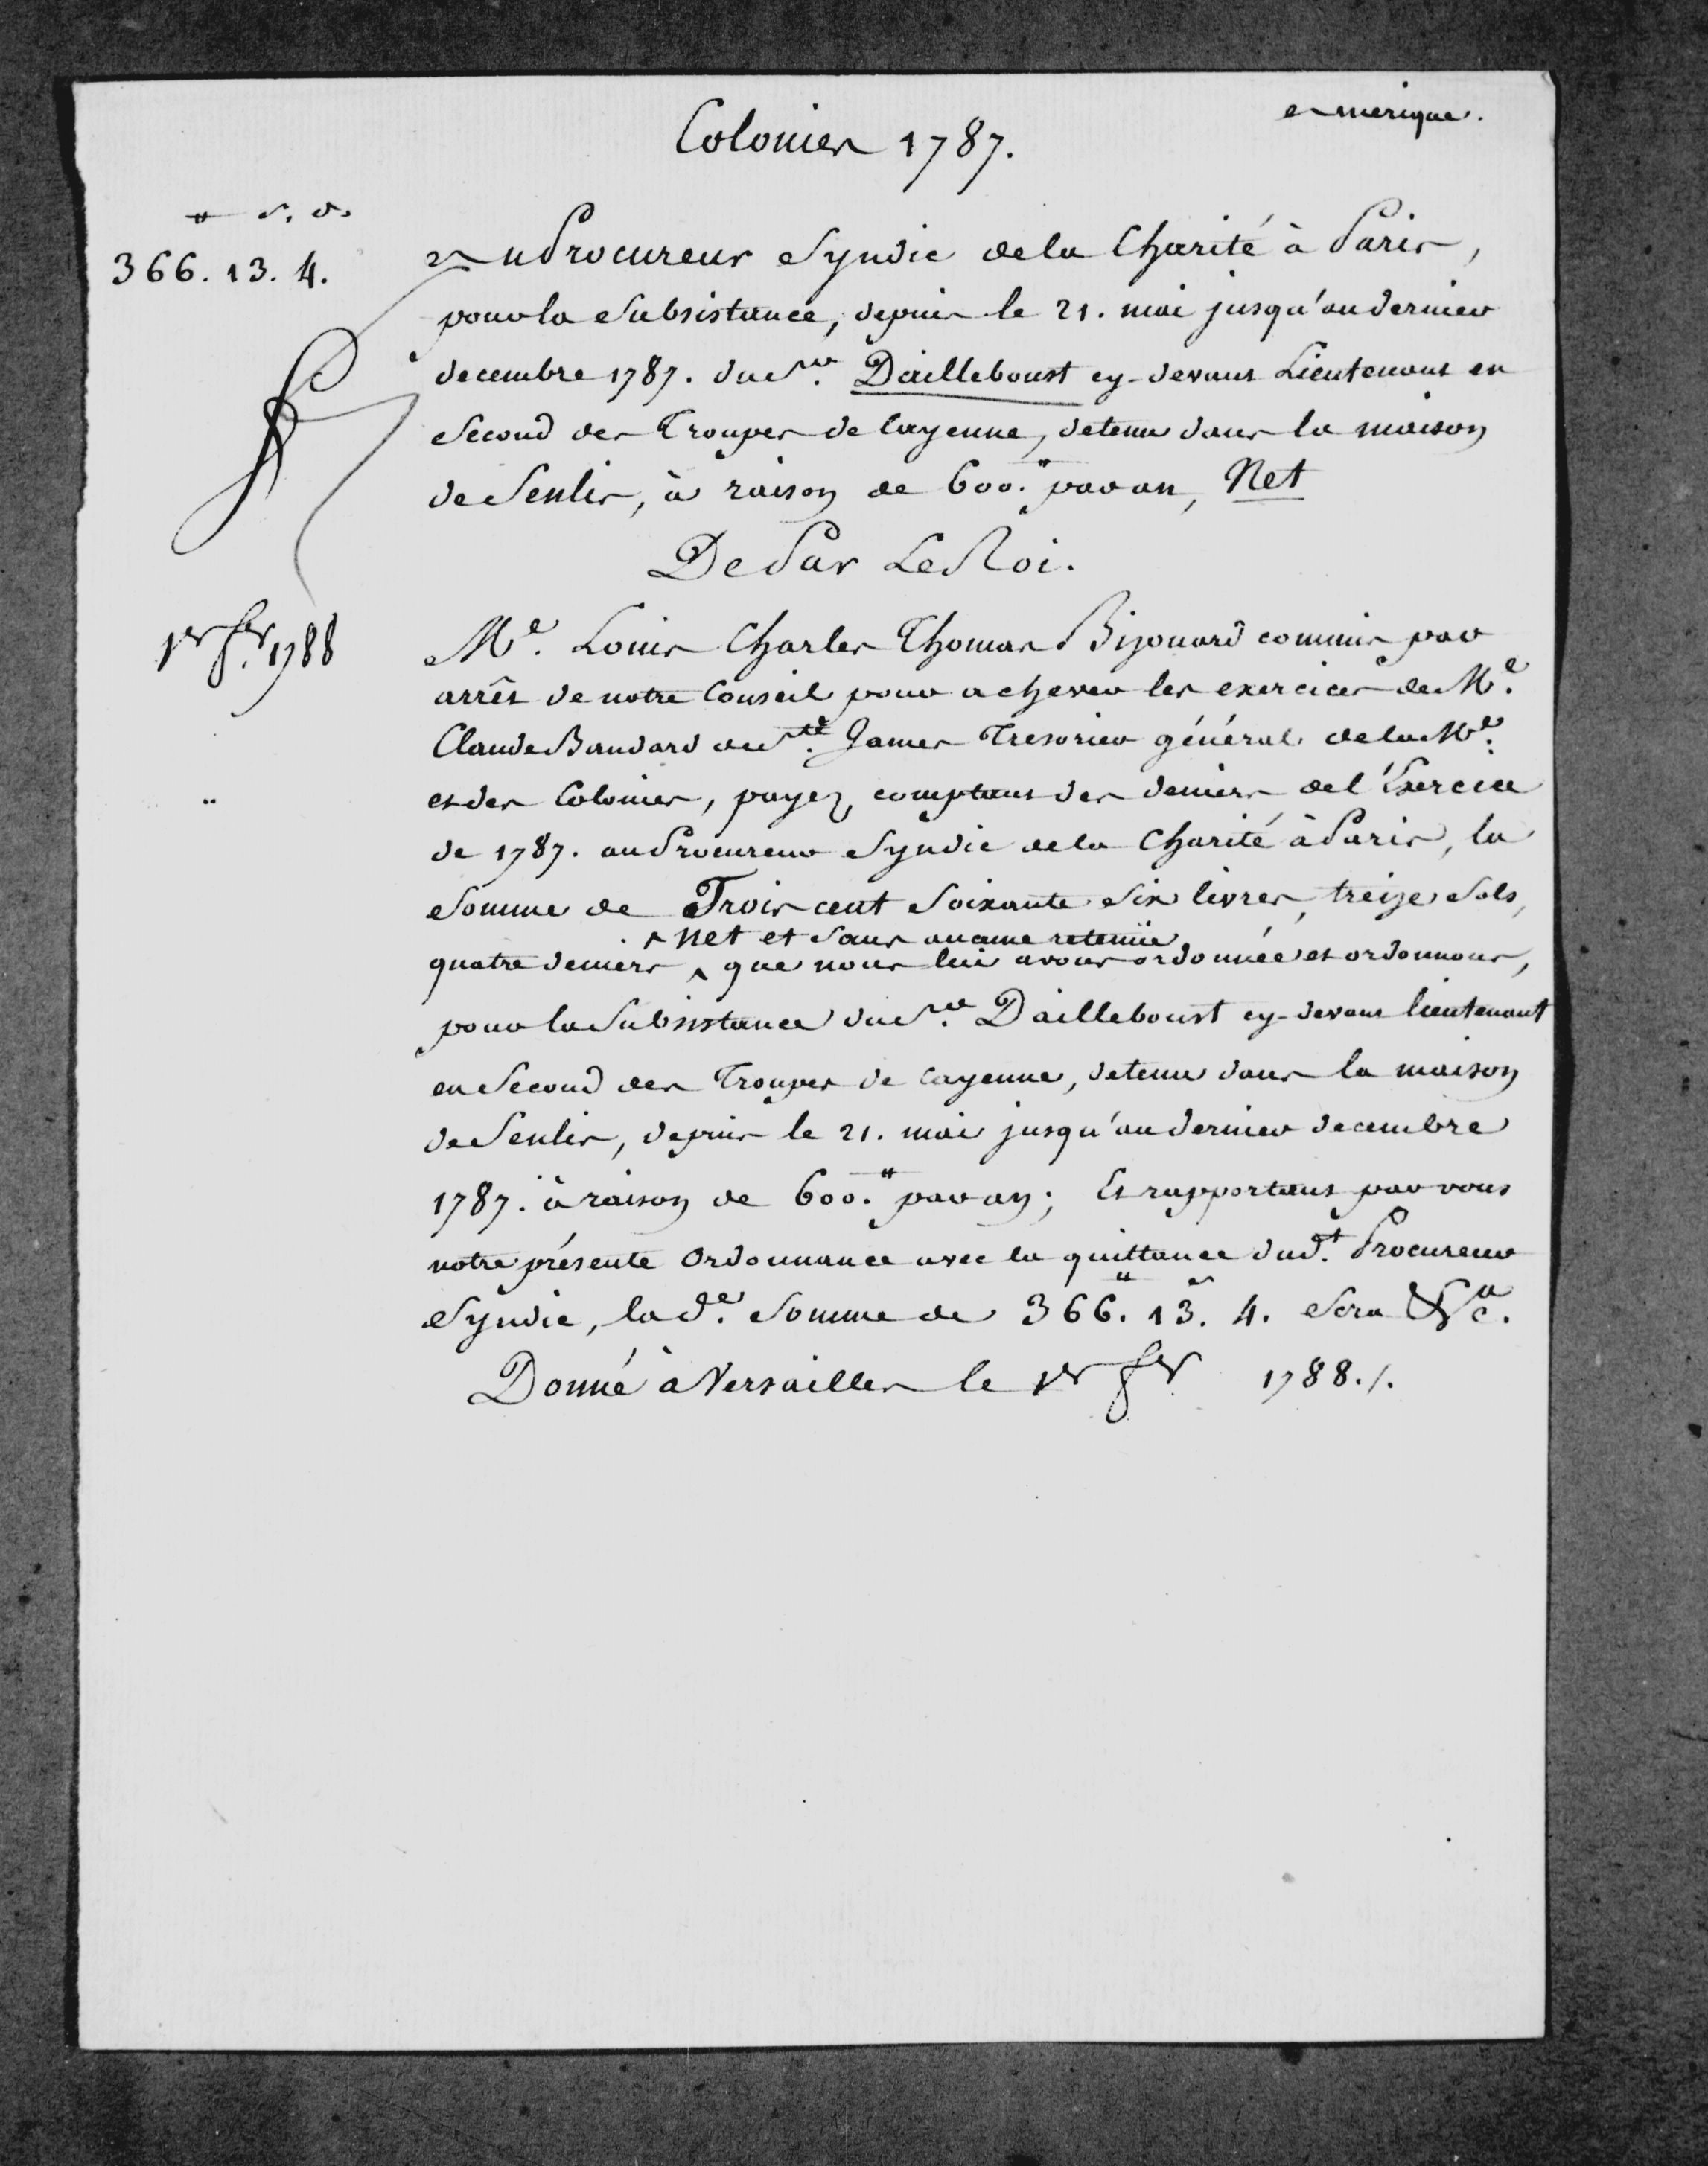 Colonies 1787.
Amerique.
# s. d.
366. 13. 4.
Au Procureur Syndic de la Charité à Paris,
pour la subsistance, depuis le 21. mai jusqu'au dernier
decembre 1787. du Sr. Dailleboust cy-devant Lieutenant en
Second des Troupes de Cayenne, detenu dans la maison
de Senlis, à raison de 600.# par an, Net
De Par Le Roi.
1er fer. 1788
Me. Louis Charles Thomas Bizouard commis par
arrêt de notre Conseil pour achever les exercices de Me.
Claude Baudard de Ste. James Tresorier général de la Me.
et des Colonies, payez comptant des deniers de l'Exercice
de 1787. au Procureur Syndic de la Charité à Paris, la
Somme de Trois cent soixante six livres, treize sols,
^ net et sans aucune retenüe
quatre deniers ^ que nous lui avons ordonnée et ordonnons,
pour la Subsistance du Sr. Dailleboust cy-devant lieutenant
en Second des Troupes de Cayenne, detenu dans la maison
de Senlis, depuis le 21. mai jusqu'au dernier decembre
1787. à raison de 600.# par an; Et rapportant par vous
notre présente Ordonnance avec la quittance dud.t Procureur
Syndic, lad.e Somme de 366.# 13.s 4. sera &c.a
Donné à Versailles le 1er fer 1788./.